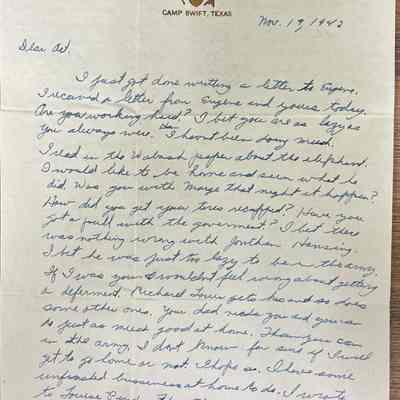 CAMP SWIFT, TEXAS
Nov. 19, 1942
Dear Art,
I just got done writing a letter to Eugene.
I received a letter from Eugene and yours today.
Are you working hard? I bet you are as lazy as
you always were. I havent been doing much.
I read in the Wabash paper about the elephant.
I would like to be home and seen what he
did. Was you with Marge that night it happen?
How did you get your tires recapped? Have you
got a pull with the goverment? I bet there
was nothing wrong with
I bet he was just too lazy to be in the army.
If I was you I wouldnt feel wrong about getting
a deferment. Richard gets his and so does
some other ones. Your dad needs you and you can
do just as much good at home. Than you can
in the army. I dont know for sure if I will
get to go home or not. I hope so. I have some
unfinished business at home to do. I wrote
to Louise